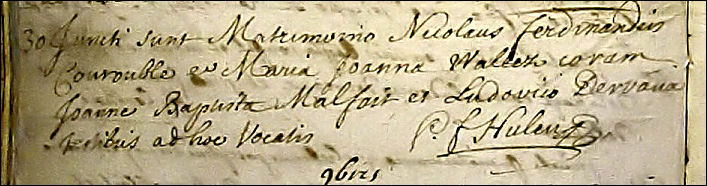 30 Juncti sunt Matrimonio Nicolaus ferdinandus
Courouble et Maria Joanna Wallez coram
Joanne Baptista Malfait et Ludovico Dervaux
testibus ad hoc Vocatis P. f Huleu
9bris